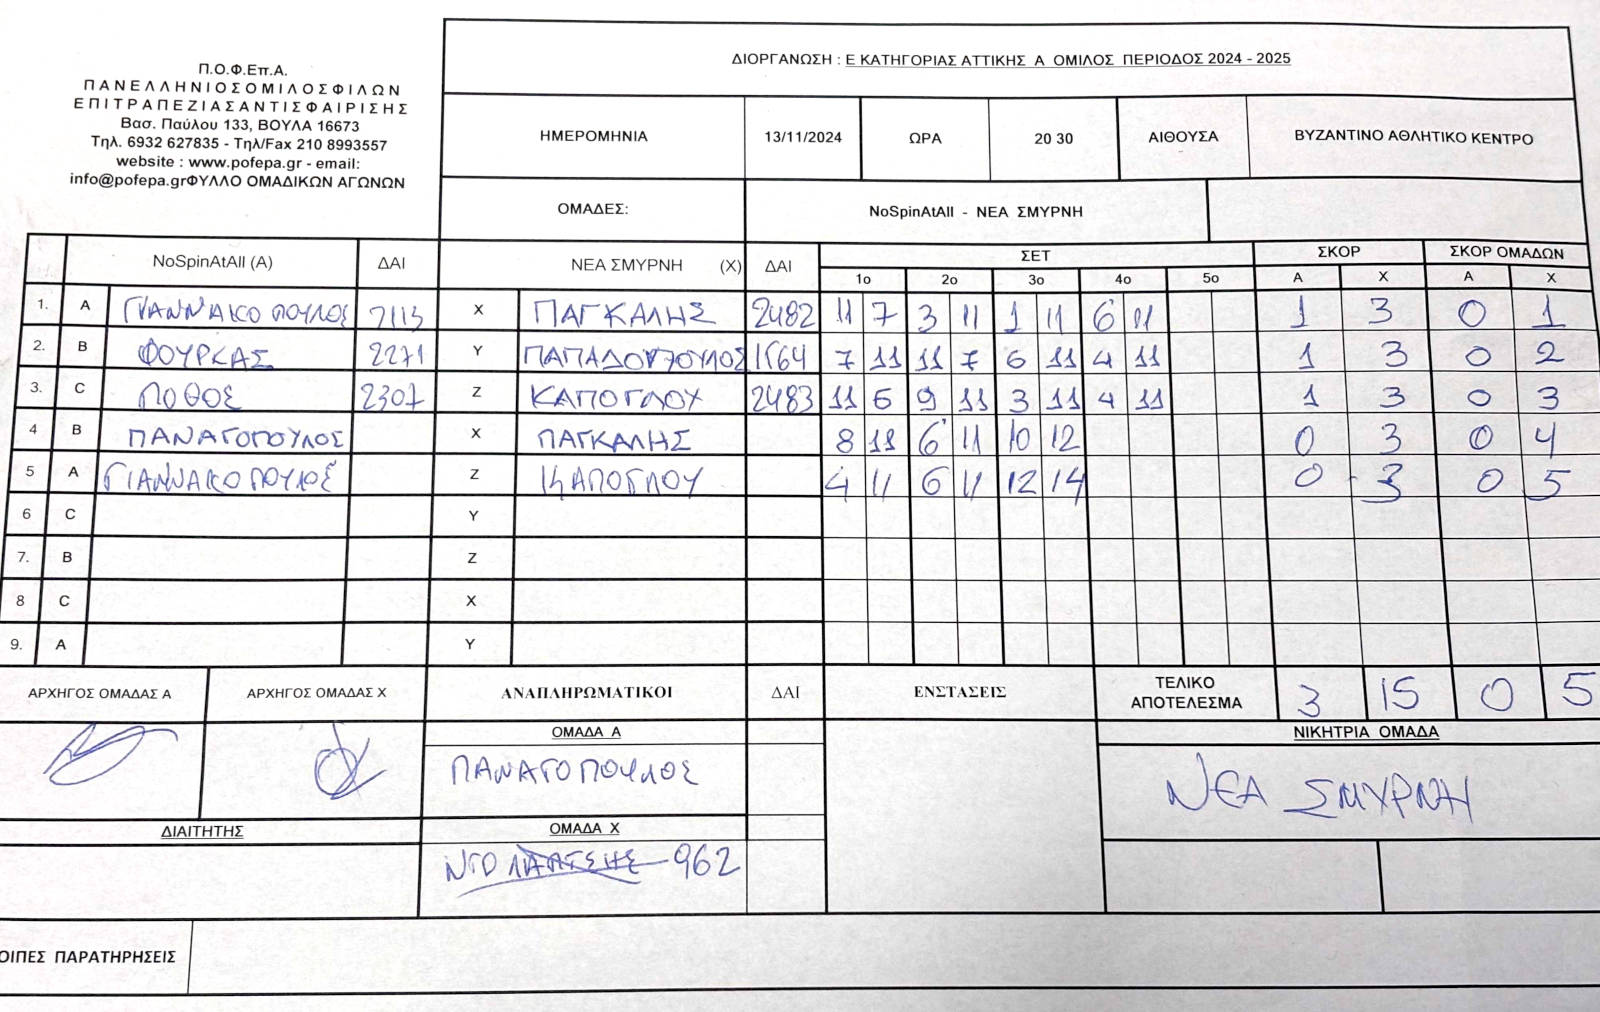 Π.Ο.Φ.Επ.Α.
ΠΑΝΕΛΛΗΝΙΟΣΟΜΙΛΟΣΦΙΛΩΝ
ΕΠΙΤΡΑΠΕΖΙΑΣΑΝΤΙΣΦΑΙΡΙΣΗΣ
Βασ. Παύλου 133, ΒΟΥΛΑ 16673
Τηλ. 6932 627835 - Τηλ/Fax 210 8993557
website : www.pofepa.gr - email:
info@pofepa.grΦΥΛΛΟ ΟΜΑΔΙΚΩΝ ΑΓΩΝΩΝ
ΔΙΟΡΓΑΝΩΣΗ : Ε ΚΑΤΗΓΟΡΙΑΣ ΑΤΤΙΚΗΣ Α ΟΜΙΛΟΣ ΠΕΡΙΟΔΟΣ 2024 - 2025
ΗΜΕΡΟΜΗΝΙΑ 13/11/2024 ΩΡΑ 20 30 ΑΙΘΟΥΣΑ ΒΥΖΑΝΤΙΝΟ ΑΘΛΗΤΙΚΟ ΚΕΝΤΡΟ
ΟΜΑΔΕΣ: NoSpinAtAll - ΝΕΑ ΣΜΥΡΝΗ
NoSpinAtAll (A) ΔΑΙ ΝΕΑ ΣΜΥΡΝΗ (X) ΔΑΙ ΣΕΤ ΣΚΟΡ ΣΚΟΡ ΟΜΑΔΩΝ
1ο 2ο 3ο 4ο 5ο Α Χ Α Χ
1. A ΓΙΑΝΝΑΚΟΠΟΥΛΟΣ 7113 X ΠΑΓΚΑΛΗΣ 2482 11 7 3 11 1 11 6 11 1 3 0 1
2. B ΦΟΥΡΚΑΣ 2271 Y ΠΑΠΑΔΟΠΟΥΛΟΣ 1564 7 11 11 7 6 11 4 11 1 3 0 2
3. C ΠΟΘΟΣ 2307 Z ΚΑΠΟΓΛΟΥ 2483 11 6 9 11 3 11 4 11 1 3 0 3
4 B ΠΑΝΑΓΟΠΟΥΛΟΣ X ΠΑΓΚΑΛΗΣ 8 11 6 11 10 12 0 3 0 4
5 A ΓΙΑΝΝΑΚΟΠΟΥΛΟΣ Z ΚΑΠΟΓΛΟΥ 4 11 6 11 12 14 0 3 0 5
6 C Y
7. B Z
8 C X
9. A Y
ΑΡΧΗΓΟΣ ΟΜΑΔΑΣ Α ΑΡΧΗΓΟΣ ΟΜΑΔΑΣ Χ ΑΝΑΠΛΗΡΩΜΑΤΙΚΟΙ ΔΑΙ ΕΝΣΤΑΣΕΙΣ ΤΕΛΙΚΟ
ΑΠΟΤΕΛΕΣΜΑ 3 15 0 5
ΟΜΑΔΑ Α ΝΙΚΗΤΡΙΑ ΟΜΑΔΑ
ΠΑΝΑΓΟΠΟΥΛΟΣ ΝΕΑ ΣΜΥΡΝΗ
ΔΙΑΙΤΗΤΗΣ ΟΜΑΔΑ Χ
962
ΟΙΠΕΣ ΠΑΡΑΤΗΡΗΣΕΙΣ